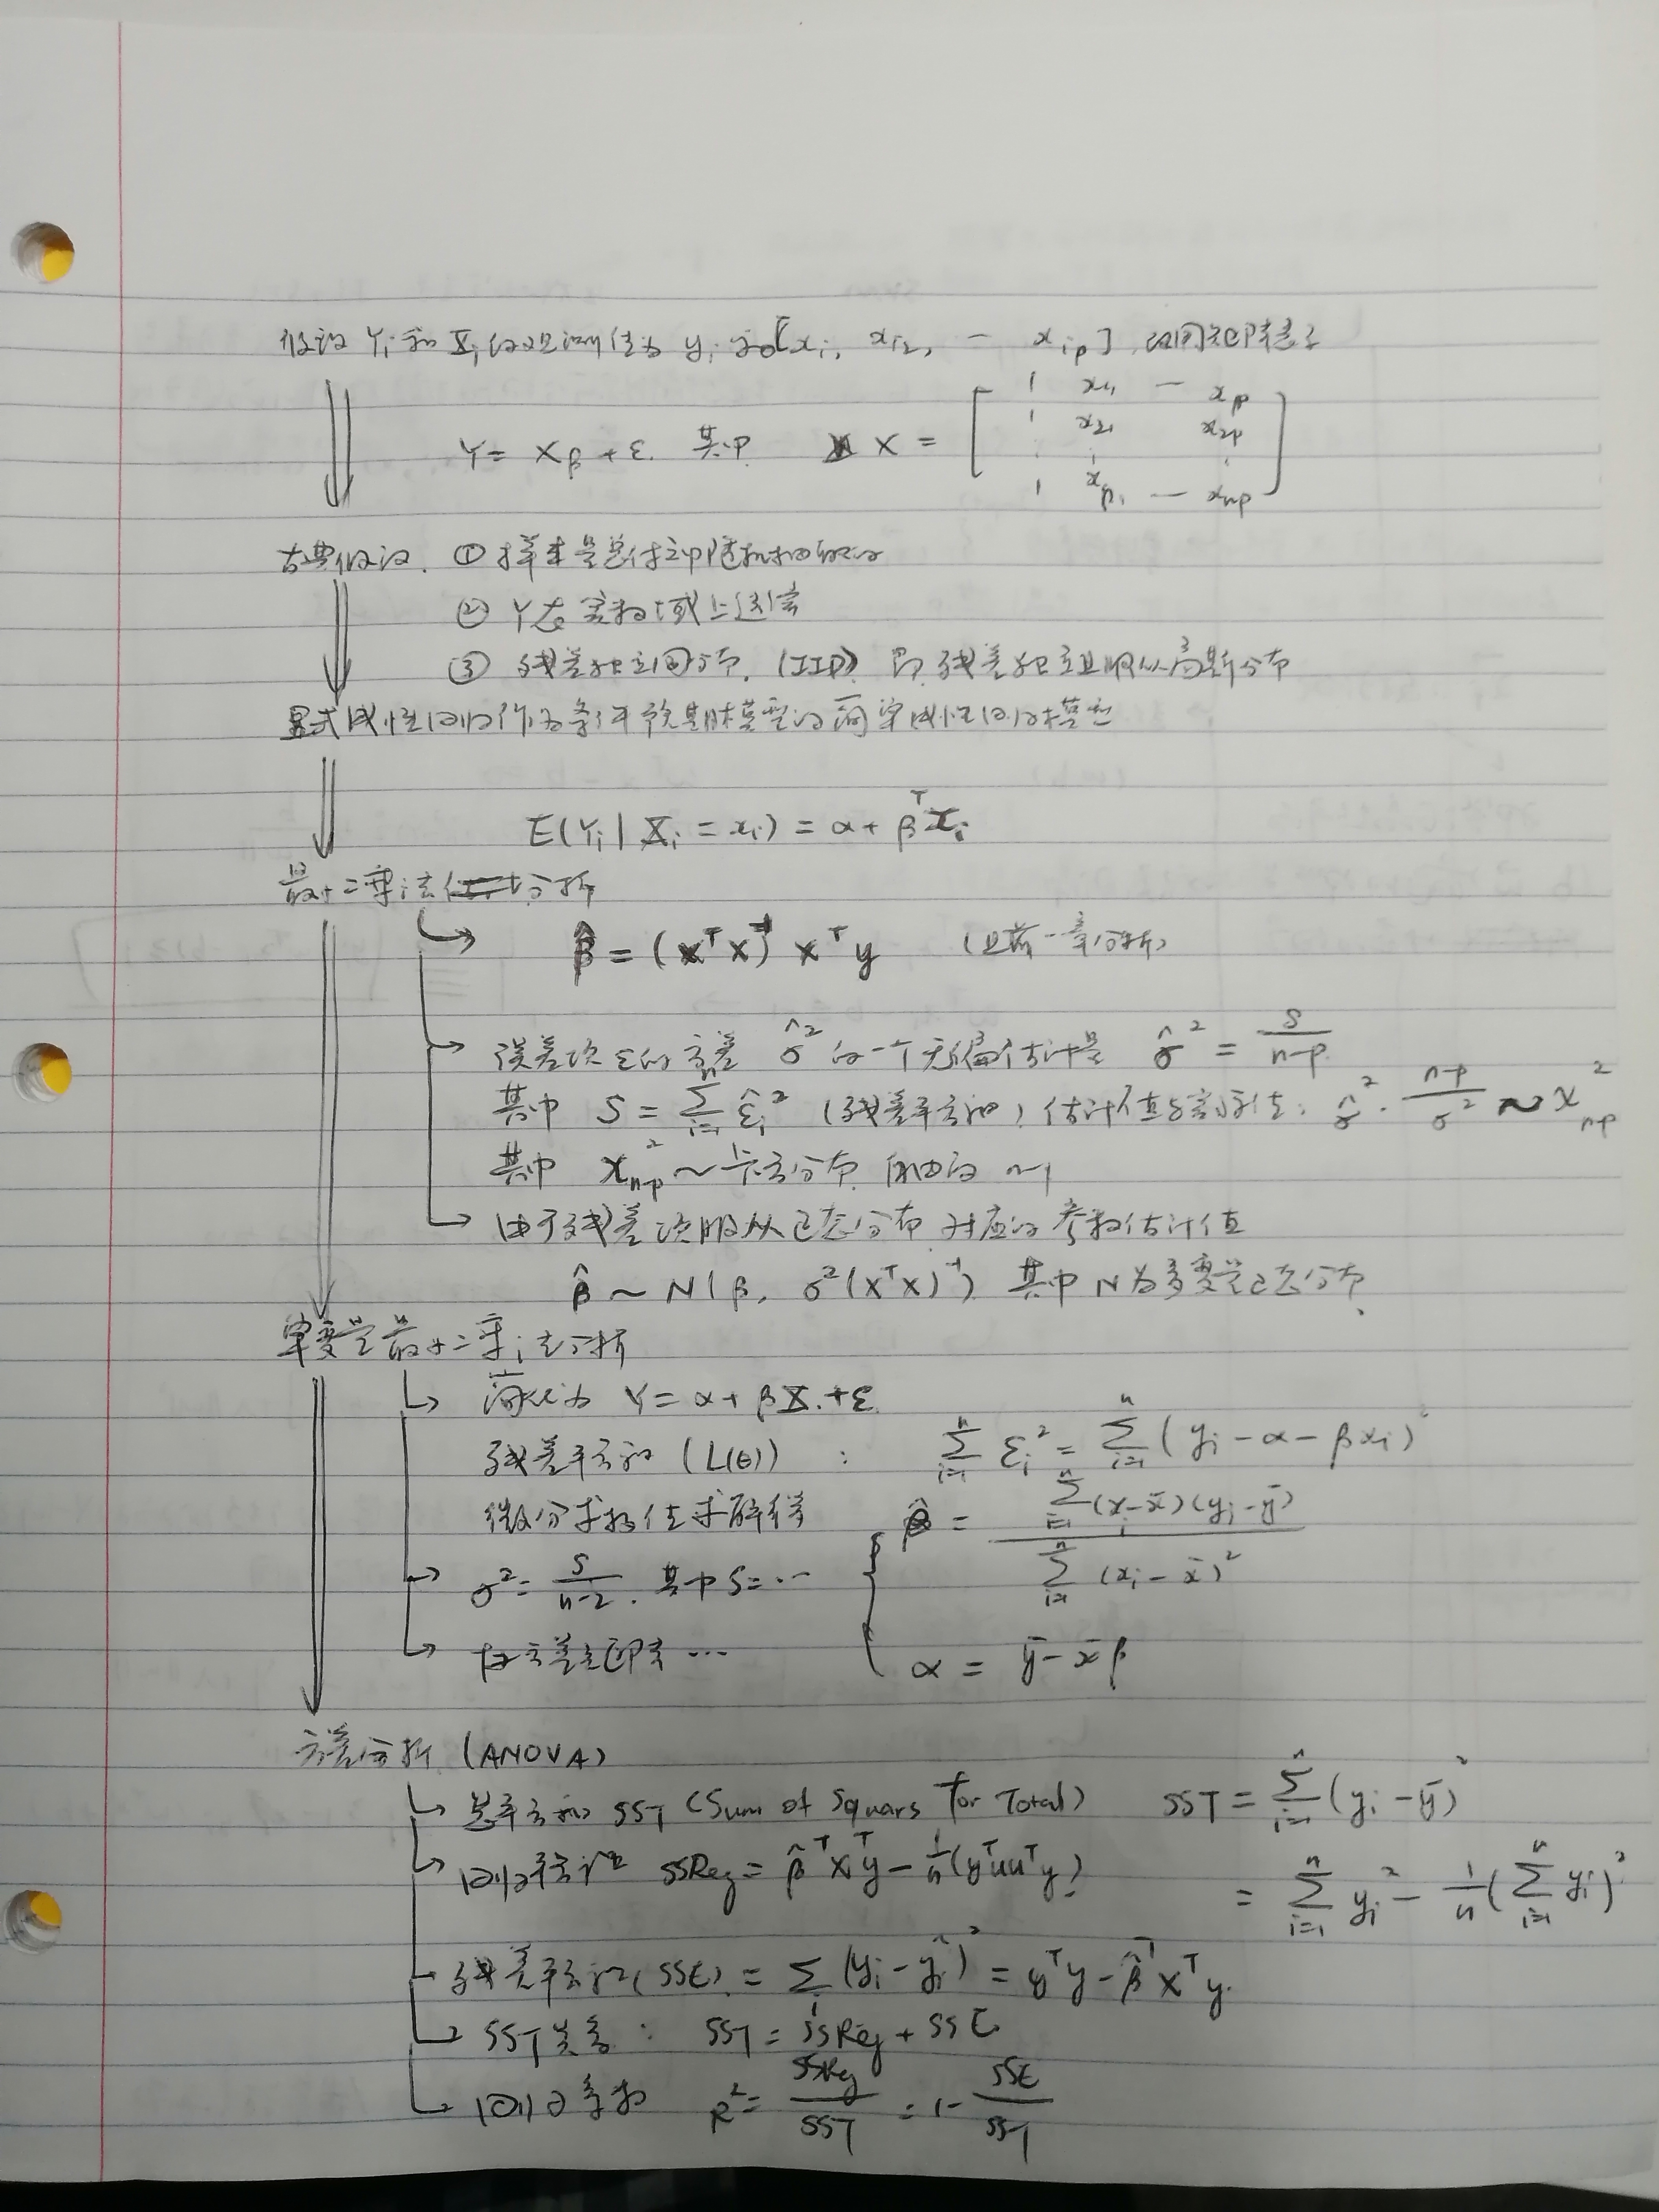 假设 Yᵢ 和 Xᵢ 的观测值为 yᵢ 和 [xᵢ₁, xᵢ₂, — xᵢₚ], 用矩阵表示
Y = Xβ + ε. 其中 X = [ 1 x₁₁ — x₁ₚ
1 x₂₁ x₂ₚ
⋮ ⋮ ⋮
1 xₙ₁ — xₙₚ ]
古典假设. ① 样本是总体之中随机抽取的
② Y 在实数域上连续
③ 残差独立同分布. (IID) 即 残差独立且服从高斯分布
显式线性回归作为条件预期模型的简单线性回归模型
E(Yᵢ | Xᵢ = xᵢ) = α + βᵀxᵢ
最小二乘法分析
β̂ = (XᵀX)⁻¹ Xᵀy (见前一章分析)
误差项ε的方差 σ̂² 的一个无偏估计是 σ̂² = S/(n-p)
其中 S = Σᵢ₌₁ⁿ ε̂ᵢ² (残差平方和) 估计值与实际值: σ̂² · (n-p)/σ² ~ χ²ₙ₋ₚ
其中 χ²ₙ₋ₚ ~ 卡方分布 自由度 n-1
由于残差项服从正态分布 对应的参数估计值
β̂ ~ N(β, σ²(XᵀX)⁻¹) 其中 N 为多变量正态分布.
单变量最小二乘法分析
简化为 Y = α + βX + ε.
残差平方和 (L(θ)) : Σᵢ₌₁ⁿ εᵢ² = Σᵢ₌₁ⁿ (yᵢ - α - βxᵢ)²
微分求极值求解得 { β̂ = Σᵢ₌₁ⁿ (xᵢ - x̄)(yᵢ - ȳ) / Σᵢ₌₁ⁿ (xᵢ - x̄)²
σ² = S/(n-2). 其中 S = ⋯
协方差矩阵为 ⋯ α = ȳ - x̄β
方差分析 (ANOVA)
总平方和 SST (Sum of Squars for Total) SST = Σᵢ₌₁ⁿ (yᵢ - ȳ)²
回归平方和 SSReg = β̂ᵀXᵀy - 1/n (yᵀuuᵀy) = Σᵢ₌₁ⁿ yᵢ² - 1/n (Σᵢ₌₁ⁿ yᵢ)²
残差平方和 (SSE) = Σᵢ (yᵢ - ŷᵢ)² = yᵀy - β̂ᵀXᵀy.
SST 关系 : SST = SSReg + SSE
回归系数 R² = SSReg/SST = 1 - SSE/SST